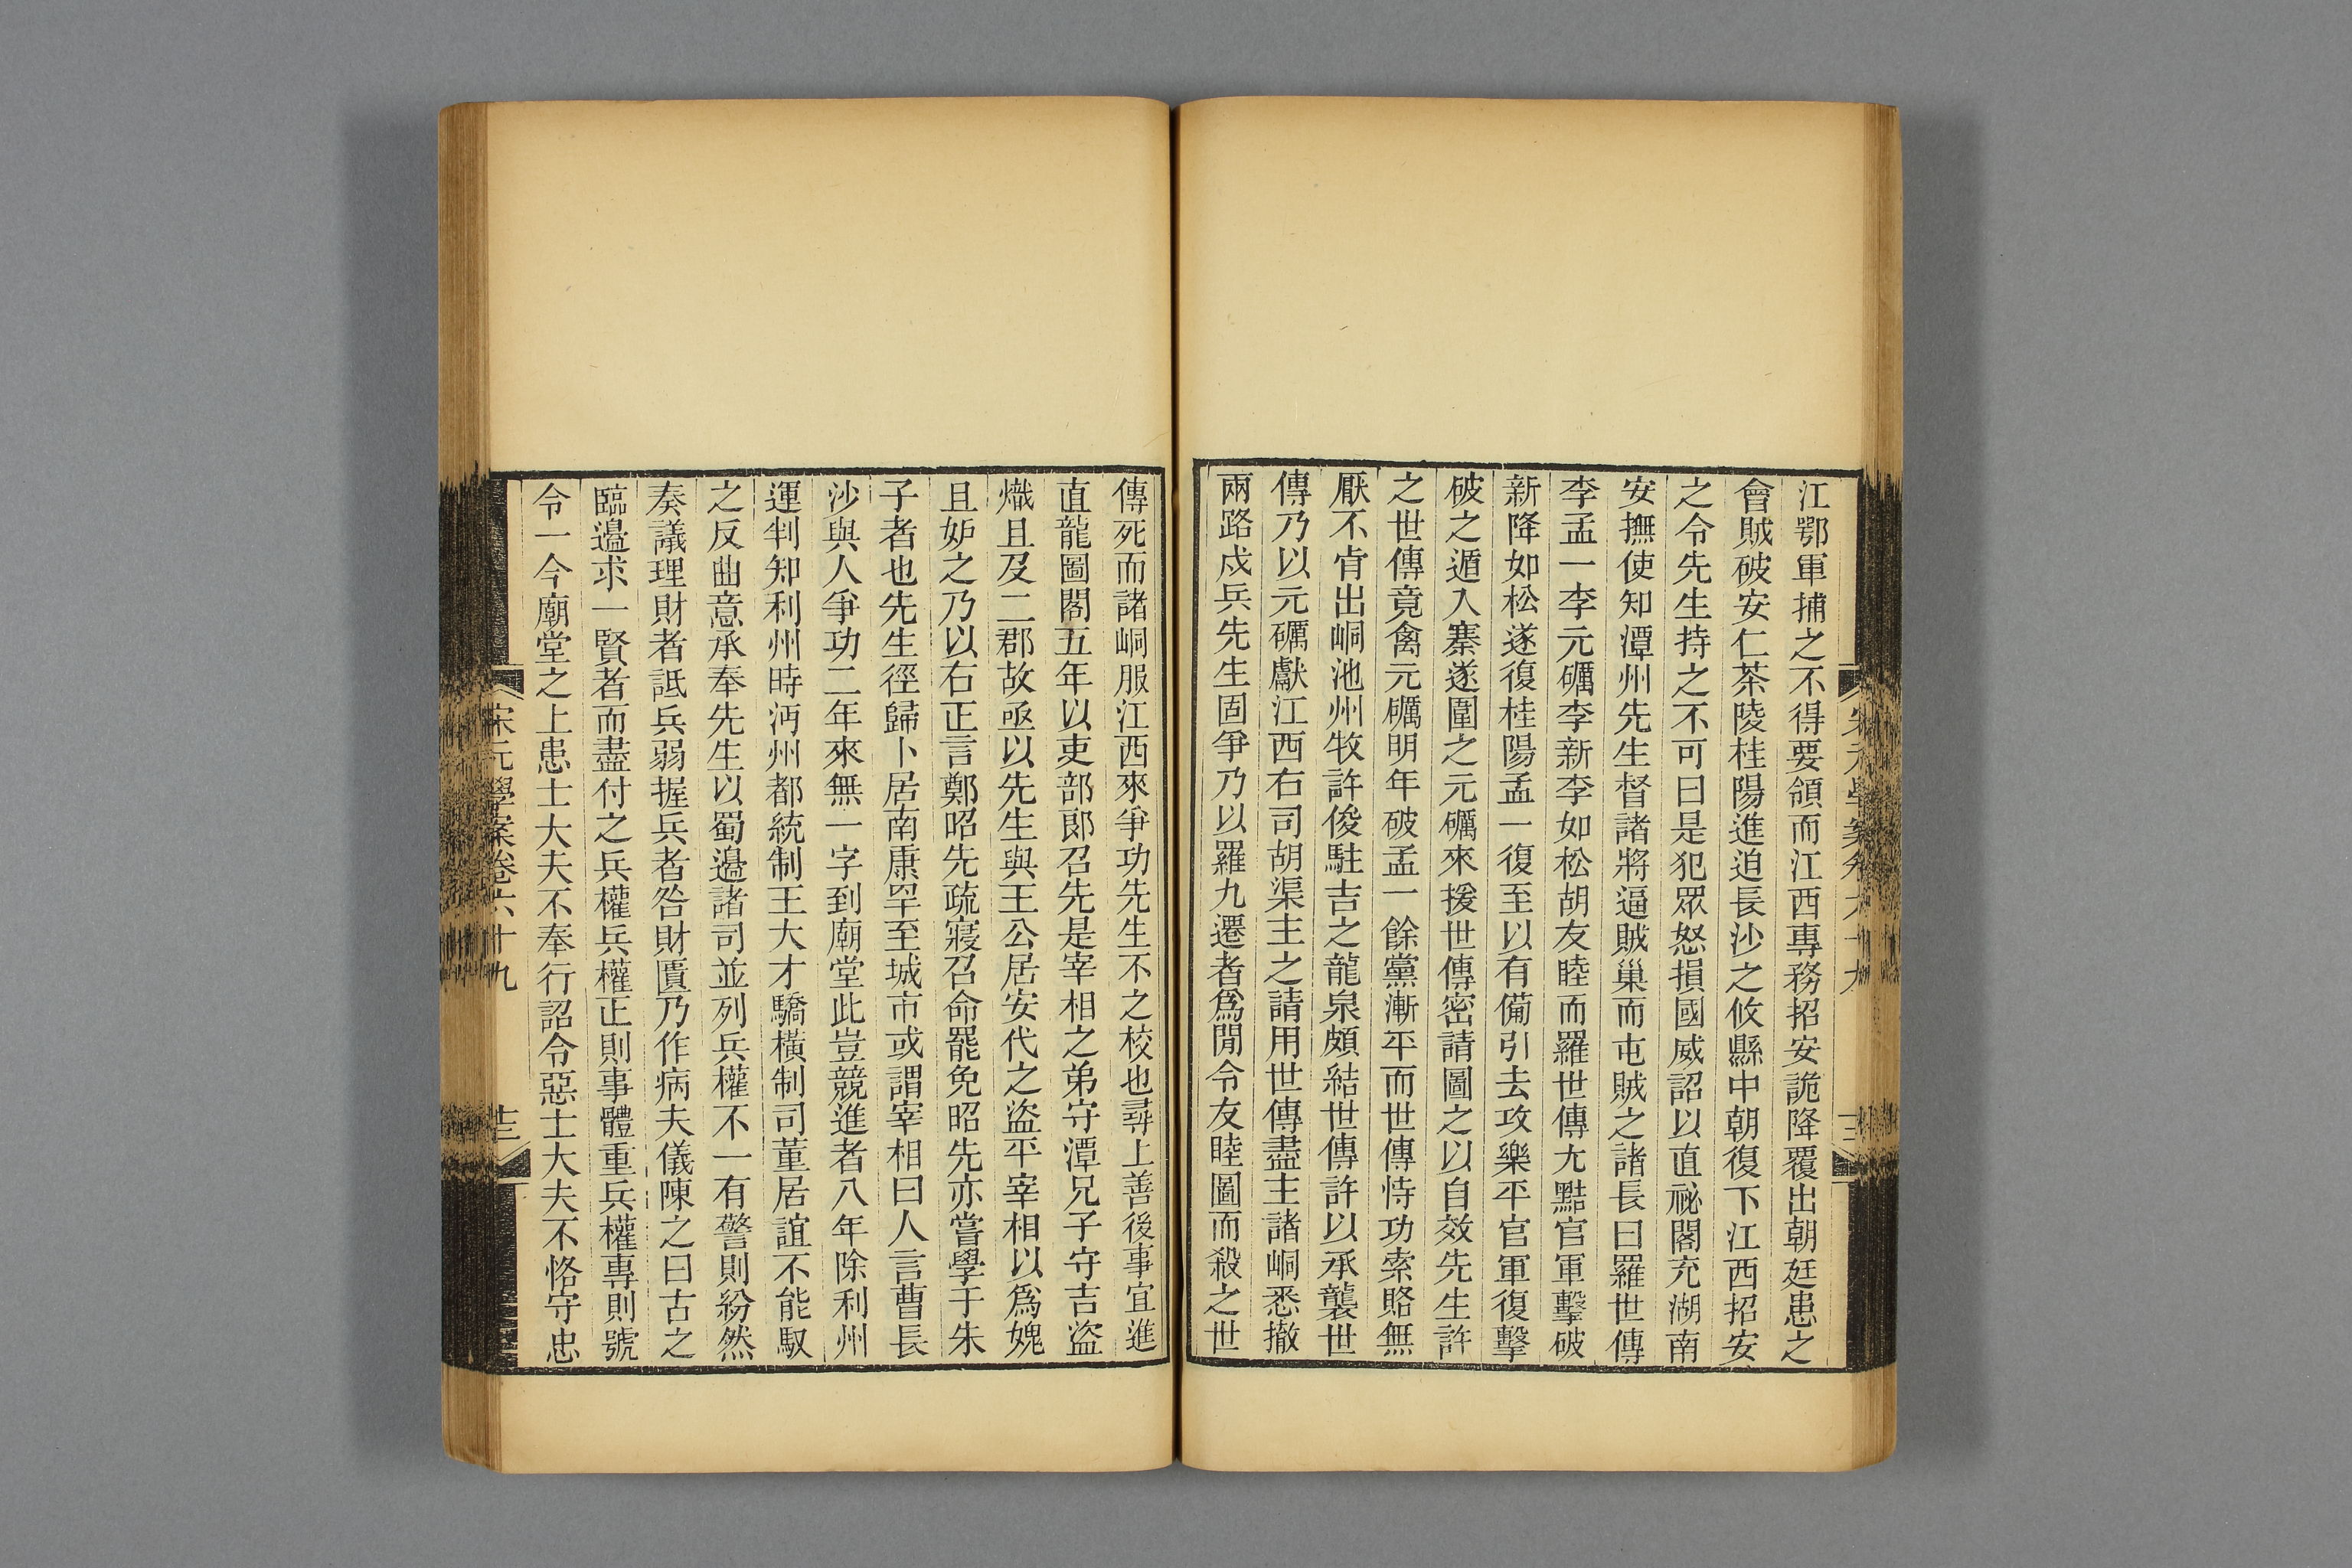 江鄂軍捕之不得要領而江西專務招安詭降覆出朝廷患之
會賊破安仁茶陵桂陽進迫長沙之攸縣中朝復下江西招安
之令先生持之不可曰是犯眾怒損國威詔以直祕閣充湖南
安撫使知潭州先生督諸將逼賊巢而屯賊之諸長曰羅世傳
李孟一李元礪李新李如松胡友睦而羅世傳尢黠官軍擊破
新降如松遂復桂陽孟一復至以有備引去攻樂平官軍復擊
破之遁入寨遂圍之元礪來援世傳密請圖之以自效先生許
之世傳竟禽元礪明年破孟一餘黨漸平而世傳恃功索賂無
厭不肯出峒池州牧許俊駐吉之龍泉頗結世傳許以承襲世
傳乃以元礪獻江西右司胡渠主之請用世傳盡主諸峒悉撤
兩路戍兵先生固爭乃以羅九遷者爲閒令友睦圖而殺之世
傳死而諸峒服江西來爭功先生不之校也尋上善後事宜進
直龍圖閣五年以吏部郎召先是宰相之弟守潭兄子守吉盜
熾且及二郡故亟以先生與王公居安代之盜平宰相以爲媿
且妒之乃以右正言鄭昭先疏寢召命罷免昭先亦嘗學于朱
子者也先生徑歸卜居南康罕至城市或謂宰相曰人言曹長
沙與人爭功二年來無一字到廟堂此豈競進者八年除利州
運判知利州時沔州都統制王大才驕橫制司董居誼不能馭
之反曲意承奉先生以蜀邊諸司並列兵權不一有警則紛然
奏議理財者詆兵弱握兵者咎財匱乃作病夫儀陳之曰古之
臨邉求一賢者而盡付之兵權兵權正則事體重兵權專則號
令一今廟堂之上患士大夫不奉行詔令惡士大夫不恪守忠
宋元學案卷六十九